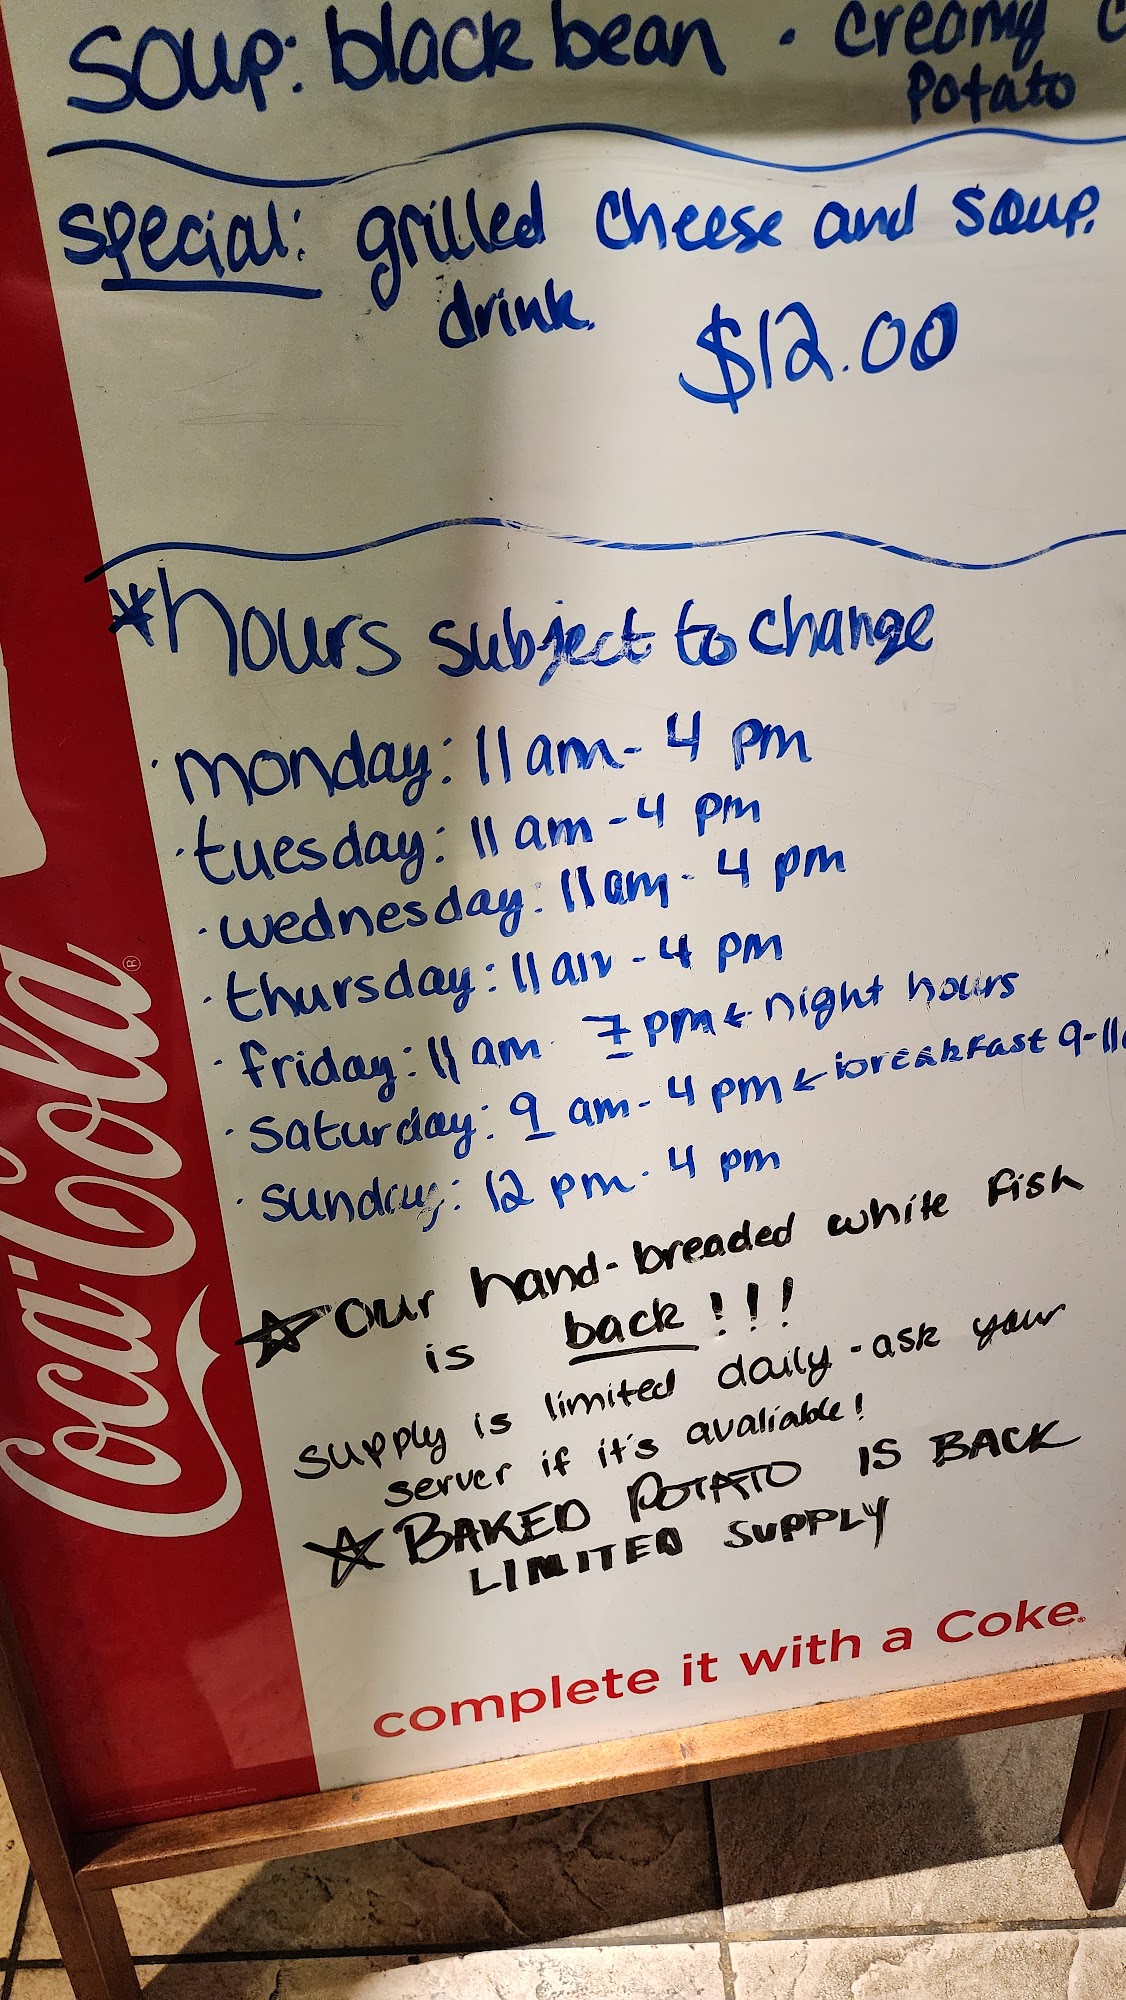 Soup: black bean · creamy
Potato
special: grilled cheese and soup.
drink. $12.00
*hours subject to change
· monday: 11am - 4 pm
· tuesday: 11 am - 4 pm
· wednesday: 11am - 4 pm
· thursday: 11am - 4 pm
· friday: 11 am - 7 pm ← night hours
· Saturday: 9 am - 4 pm ← breakfast 9-11
· sunday: 12 pm - 4 pm
☆ our hand-breaded white fish
is back!!!
supply is limited daily - ask your
server if it's avaliable!
☆ BAKED POTATO IS BACK
LIMITED SUPPLY
complete it with a Coke®
Coca-Cola®